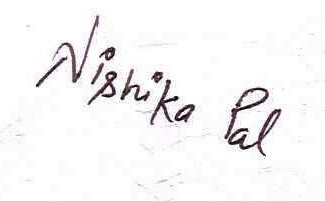 Nishika Pal